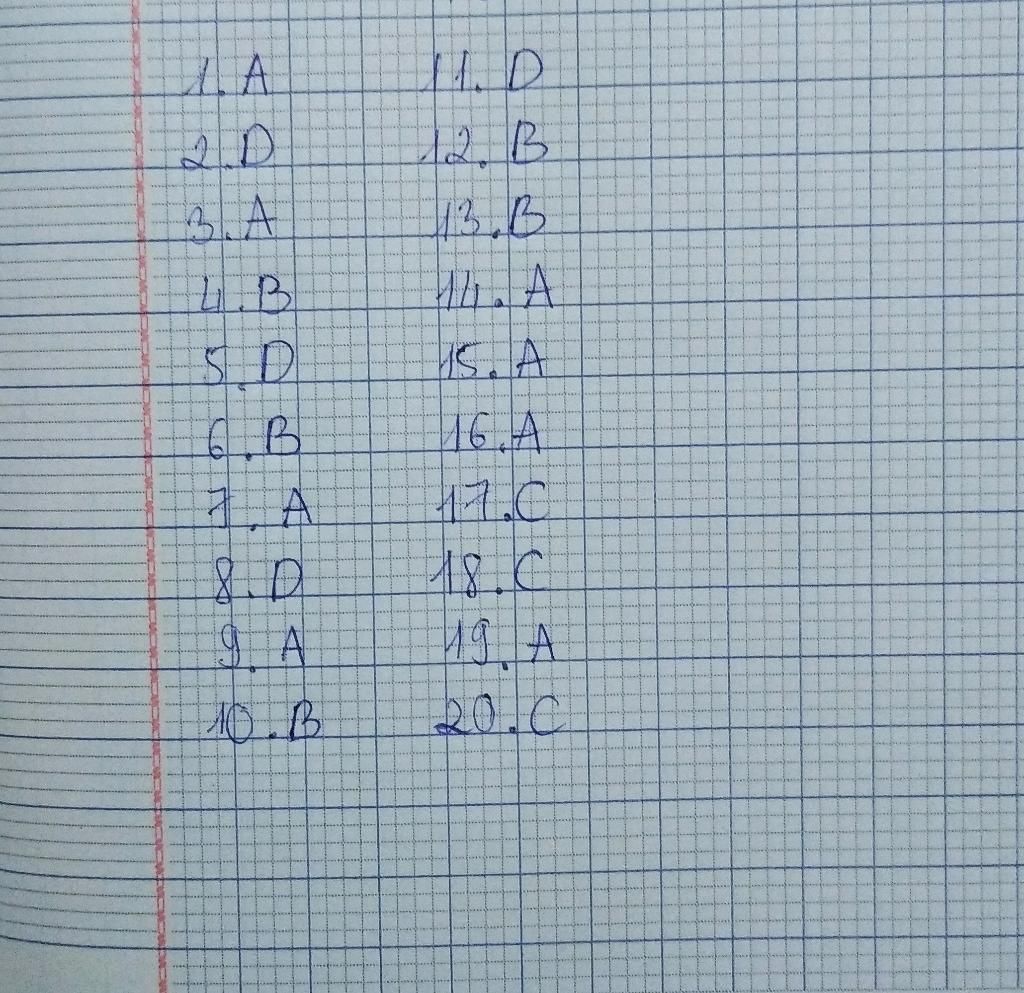 1. A
2. D
3. A
4. B
5. D
6. B
7. A
8. D
9. A
10. B
11. D
12. B
13. B
14. A
15. A
16. A
17. C
18. C
19. A
20. C